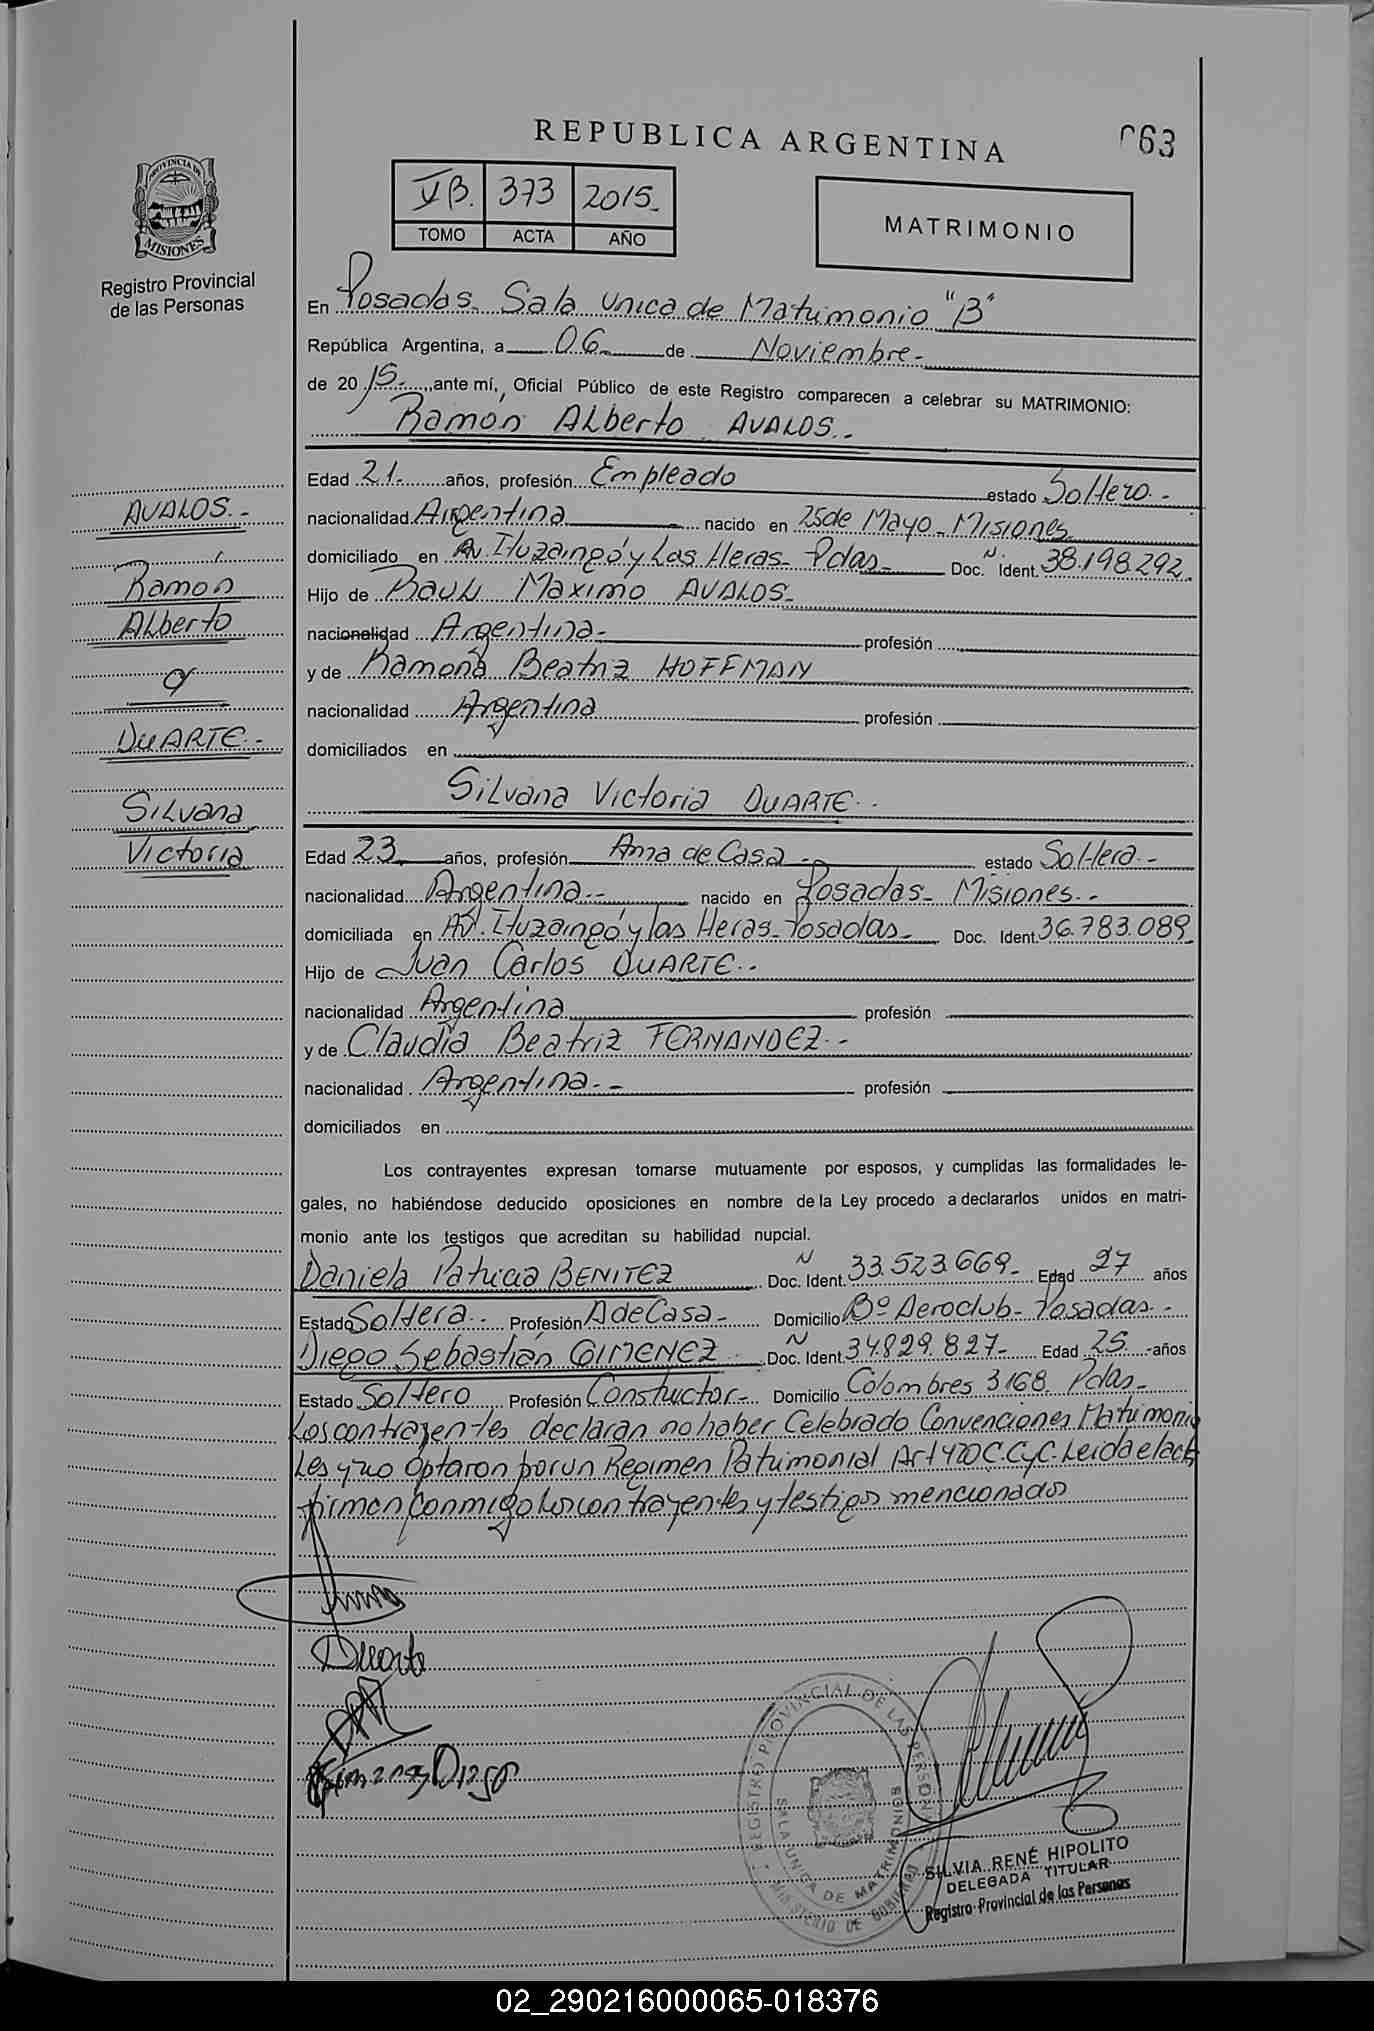 REPUBLICA ARGENTINA
063
PROVINCIA DE MISIONES
Registro Provincial
de las Personas
VB. 373 2015
TOMO ACTA AÑO
MATRIMONIO
En Posadas. Sala Unica de Matrimonio "B"
República Argentina, a 06 de Noviembre.
de 2015. ante mí, Oficial Público de este Registro comparecen a celebrar su MATRIMONIO:
Ramon Alberto AVALOS.
Edad 21. años, profesión Empleado estado Soltero.
nacionalidad Argentina nacido en 25 de Mayo. Misiones
domiciliado en Av. Ituzaingó y Las Heras. Pdas. Doc. N Ident. 38.198.292.
Hijo de Raul Maximo AVALOS.
nacionalidad Argentina. profesión
y de Ramona Beatriz HOFFMAN
nacionalidad Argentina profesión
domiciliados en
Silvana Victoria DUARTE.
Edad 23 años, profesión Ama de Casa. estado Soltera.
nacionalidad Argentina. nacido en Posadas. Misiones.
domiciliada en AV. Ituzaingó y las Heras. Posadas. Doc. Ident. 36.783.089
Hijo de Juan Carlos DUARTE.
nacionalidad Argentina profesión
y de Claudia Beatriz FERNANDEZ.
nacionalidad Argentina. profesión
domiciliados en
AVALOS.
Ramón
Alberto
y
DUARTE.
Silvana
Victoria
Los contrayentes expresan tomarse mutuamente por esposos, y cumplidas las formalidades le-
gales, no habiéndose deducido oposiciones en nombre de la Ley procedo a declararlos unidos en matri-
monio ante los testigos que acreditan su habilidad nupcial.
Daniela Patricia BENITEZ Doc. N Ident. 33.523.669. Edad 27 años
Estado Soltera. Profesión A de Casa. Domicilio Bº Aeroclub. Posadas.
Diego Sebastián GIMENEZ. Doc. N Ident. 34.829.827. Edad 25. años
Estado Soltero Profesión Constuctor. Domicilio Colombres 3168. Pdas.
Los contrayentes declaran no haber Celebrado Convenciones Matrimonia
les y no optaron por un Regimen Patrimonial Art 420 C.C y C. Leida el acta
firman conmigo los contrayentes y testigos mencionados
Duarte
Gimenez Diego
REGISTRO PROVINCIAL DE LAS PERSONAS
SALA UNICA DE MATRIMONIOS
MINISTERIO DE GOBIERNO
SILVIA RENÉ HIPOLITO
DELEGADA TITULAR
Registro Provincial de las Personas
02_290216000065-018376